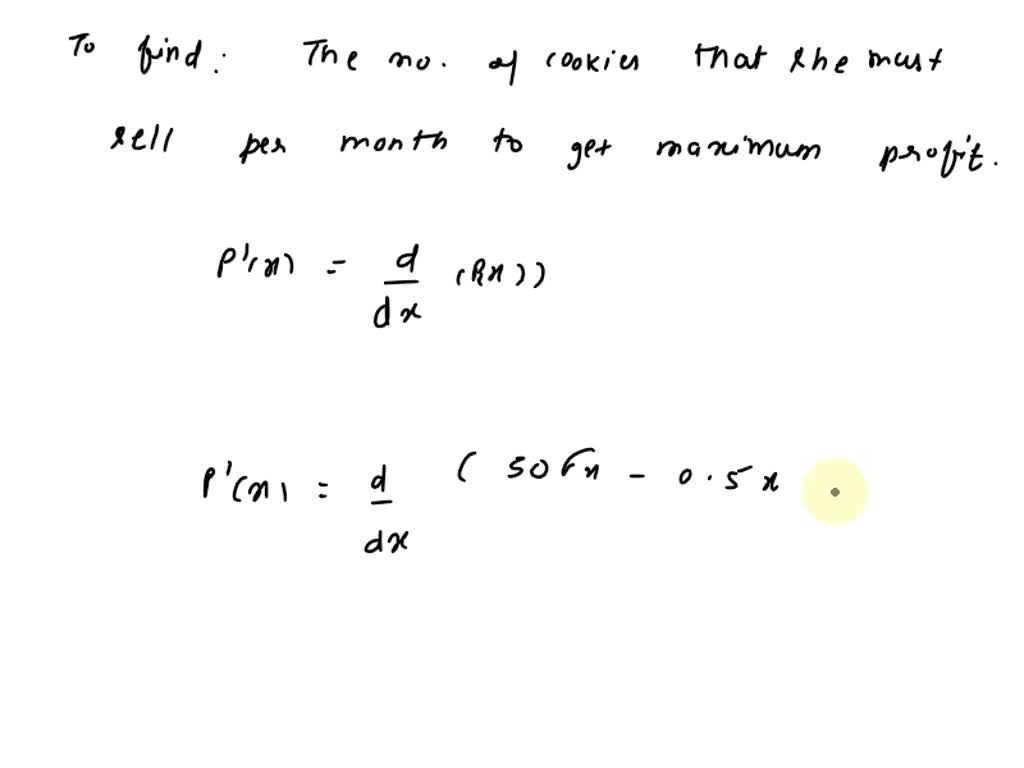 To find: The no. of cookies that she must
sell per month to get maximum profit.
P'(x) = d/dx (P(x))
P'(x) = d/dx (50√x - 0.5x